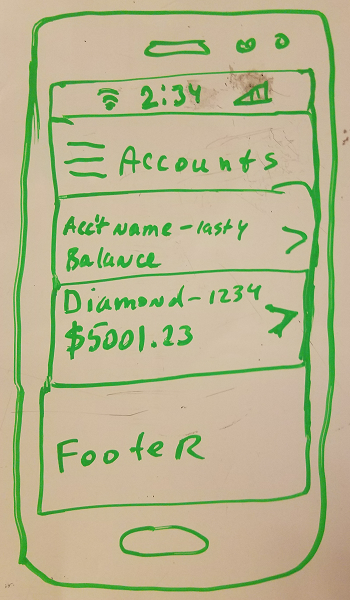 2:34
Accounts
Acc't Name - last 4
Balance
Diamond - 1234
$5001.23
Footer